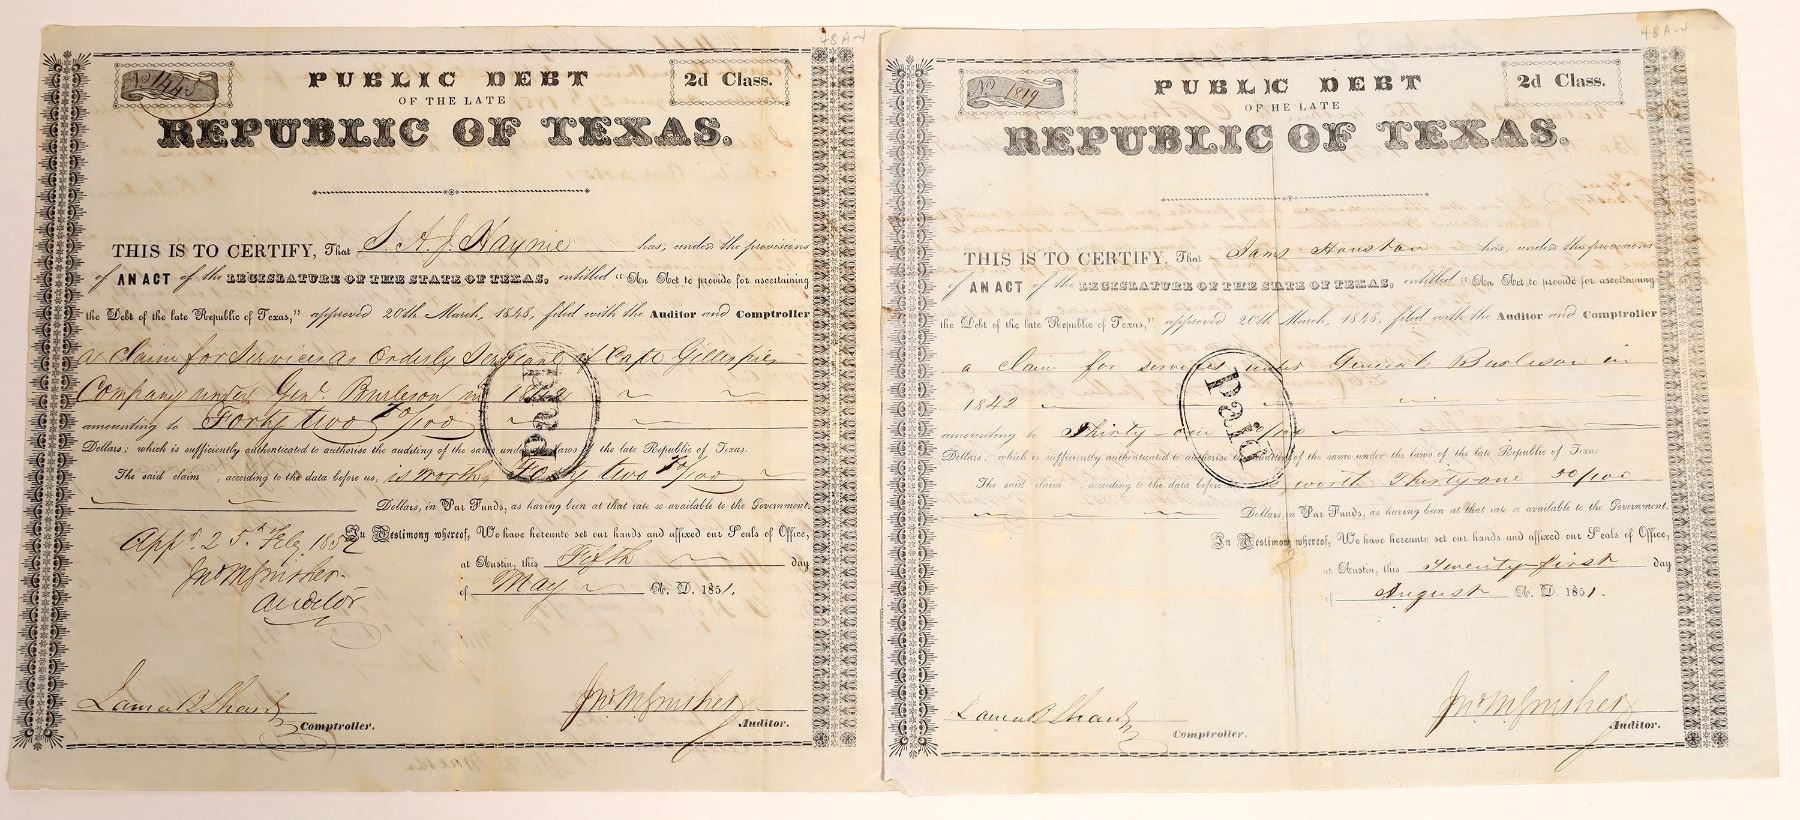 48A-4
No 1445
PUBLIC DEBT
2d Class.
OF THE LATE
REPUBLIC OF TEXAS.
THIS IS TO CERTIFY, That S. A. J. Haynie has, under the provisions
of AN ACT of the LEGISLATURE OF THE STATE OF TEXAS, entitled "An Act to provide for ascertaining
the Debt of the late Republic of Texas," approved 20th March, 1848, filed with the Auditor and Comptroller
a claim for services as Orderly Sergeant of Capt Gillespies
Company under Genl. Burleson in 1842
amounting to Forty two 50/100
Dollars; which is sufficiently authenticated to authorise the auditing of the same under the laws of the late Republic of Texas.
The said claim, according to the data before us, is worth Forty two 50/100
Dollars, in Par Funds, as having been at that rate so available to the Government.
In Testimony whereof, We have hereunto set our hands and affixed our Seals of Office,
at Austin, this Fifth day
of May A. D. 1851.
Paid
Appd. 25th Feb. 1852
Jno M Swisher
Auditor
James B Shaw
Comptroller.
Jno. M. Swisher
Auditor.
48A-4
No 1819
PUBLIC DEBT
2d Class.
OF HE LATE
REPUBLIC OF TEXAS.
THIS IS TO CERTIFY, That Saml Houston has, under the provisions
of AN ACT of the LEGISLATURE OF THE STATE OF TEXAS, entitled "An Act to provide for ascertaining
the Debt of the late Republic of Texas," approved 20th March, 1848, filed with the Auditor and Comptroller
a claim for services under General Burleson in
1842
amounting to Thirty-one 50/100
Dollars; which is sufficiently authenticated to authorise the auditing of the same under the laws of the late Republic of Texas
The said claim, according to the data before worth Thirty one 50/100
Dollars, in Par Funds, as having been at that rate so available to the Government.
In Testimony whereof, We have hereunto set our hands and affixed our Seals of Office,
at Austin, this Twenty-first day
of August A. D. 1851.
Paid
James B Shaw
Comptroller.
Jno. M. Swisher
Auditor.